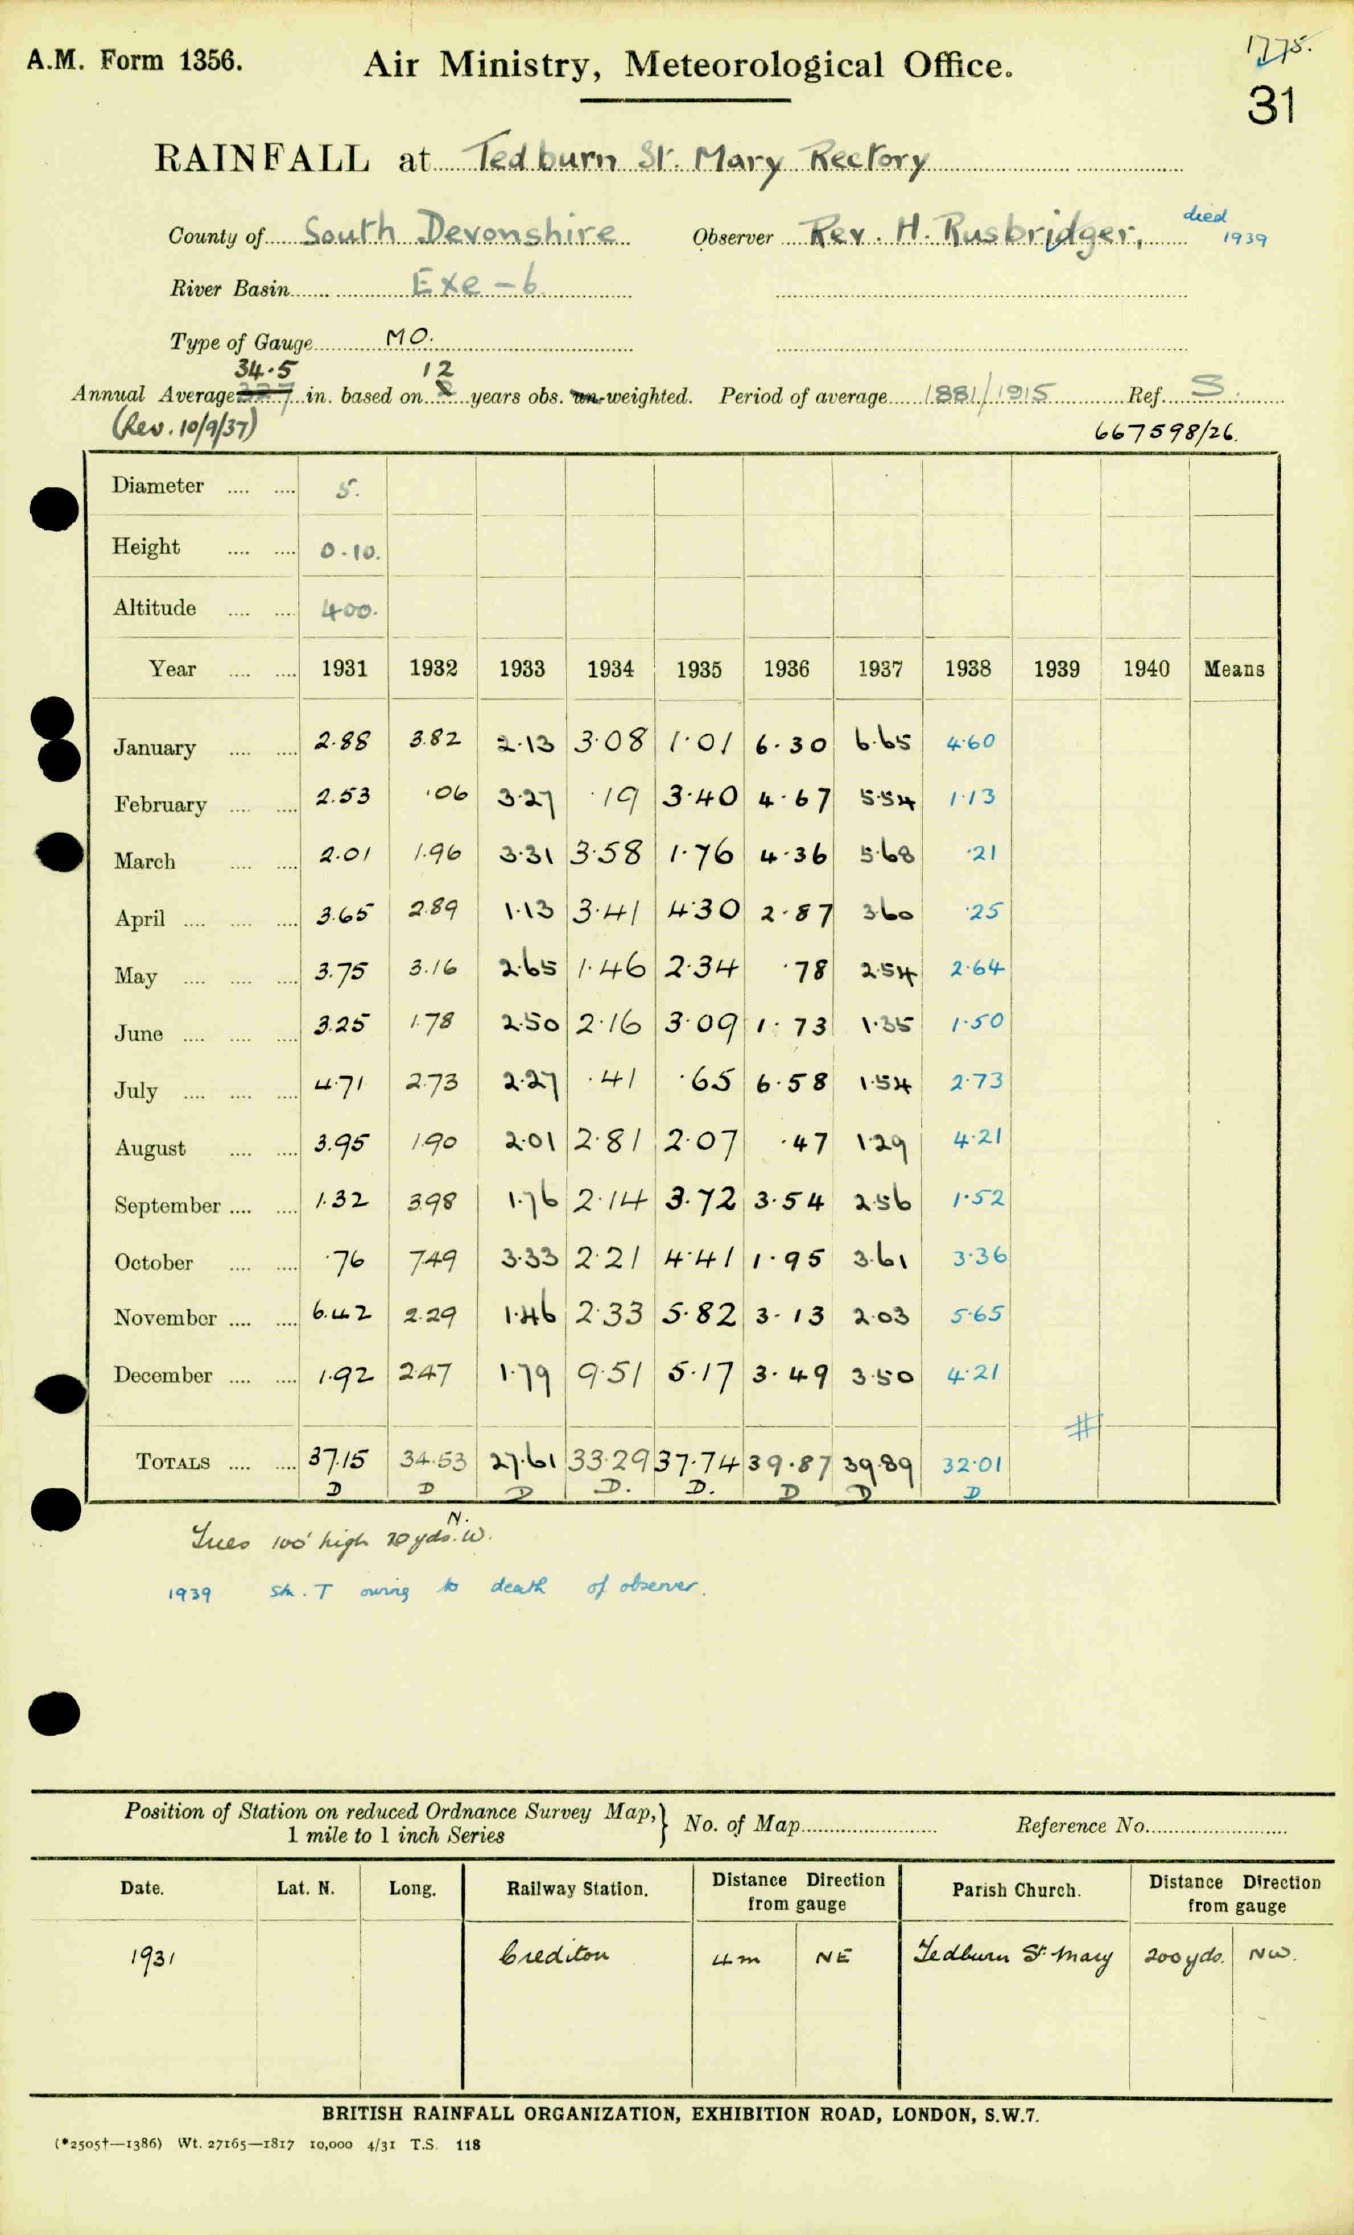 A.M. Form 1356.
Air Ministry, Meteorological Office.
1775.
31
RAINFALL at Tedburn St. Mary Rectory
County of South Devonshire Observer Rev. H. Rusbridger, died 1939
River Basin Exe - 6
Type of Gauge MO.
34.5 12
Annual Average in. based on 8 years obs. un-weighted. Period of average 1881/1915 Ref. S.
(Rev. 10/9/37) 667598/26.
Diameter .... .... 5.
Height .... .... 0.10.
Altitude .... .... 400.
Year .... .... 1931 1932 1933 1934 1935 1936 1937 1938 1939 1940 Means
January .... .... 2.88 3.82 2.13 3.08 1.01 6.30 6.65 4.60
February .... .... 2.53 .06 3.27 .19 3.40 4.67 5.54 1.13
March .... .... 2.01 1.96 3.31 3.58 1.76 4.36 5.68 .21
April .... .... .... 3.65 2.89 1.13 3.41 4.30 2.87 3.60 .25
May .... .... .... 3.75 3.16 2.65 1.46 2.34 .78 2.54 2.64
June .... .... .... 3.25 1.78 2.50 2.16 3.09 1.73 1.35 1.50
July .... .... .... 4.71 2.73 2.27 .41 .65 6.58 1.54 2.73
August .... .... 3.95 1.90 2.01 2.81 2.07 .47 1.29 4.21
September .... .... 1.32 3.98 1.76 2.14 3.72 3.54 2.56 1.52
October .... .... .76 7.49 3.33 2.21 4.41 1.95 3.61 3.36
November .... .... 6.42 2.29 1.46 2.33 5.82 3.13 2.03 5.65
December .... .... 1.92 2.47 1.79 9.51 5.17 3.49 3.50 4.21
#
TOTALS .... .... 37.15 34.53 27.61 33.29 37.74 39.87 39.89 32.01
D D D D. D. D D D
Trees 100' high 70 yds. N.W.
1939 Stn. T owing to death of observer.
Position of Station on reduced Ordnance Survey Map, } No. of Map Reference No.
1 mile to 1 inch Series
Date. Lat. N. Long. Railway Station. Distance Direction from gauge Parish Church. Distance Direction from gauge
1931 Crediton 4m NE Tedburn St Mary 200 yds. NW.
BRITISH RAINFALL ORGANIZATION, EXHIBITION ROAD, LONDON, S.W.7.
(*2505†—1386) Wt. 27165—1817 10,000 4/31 T.S. 118